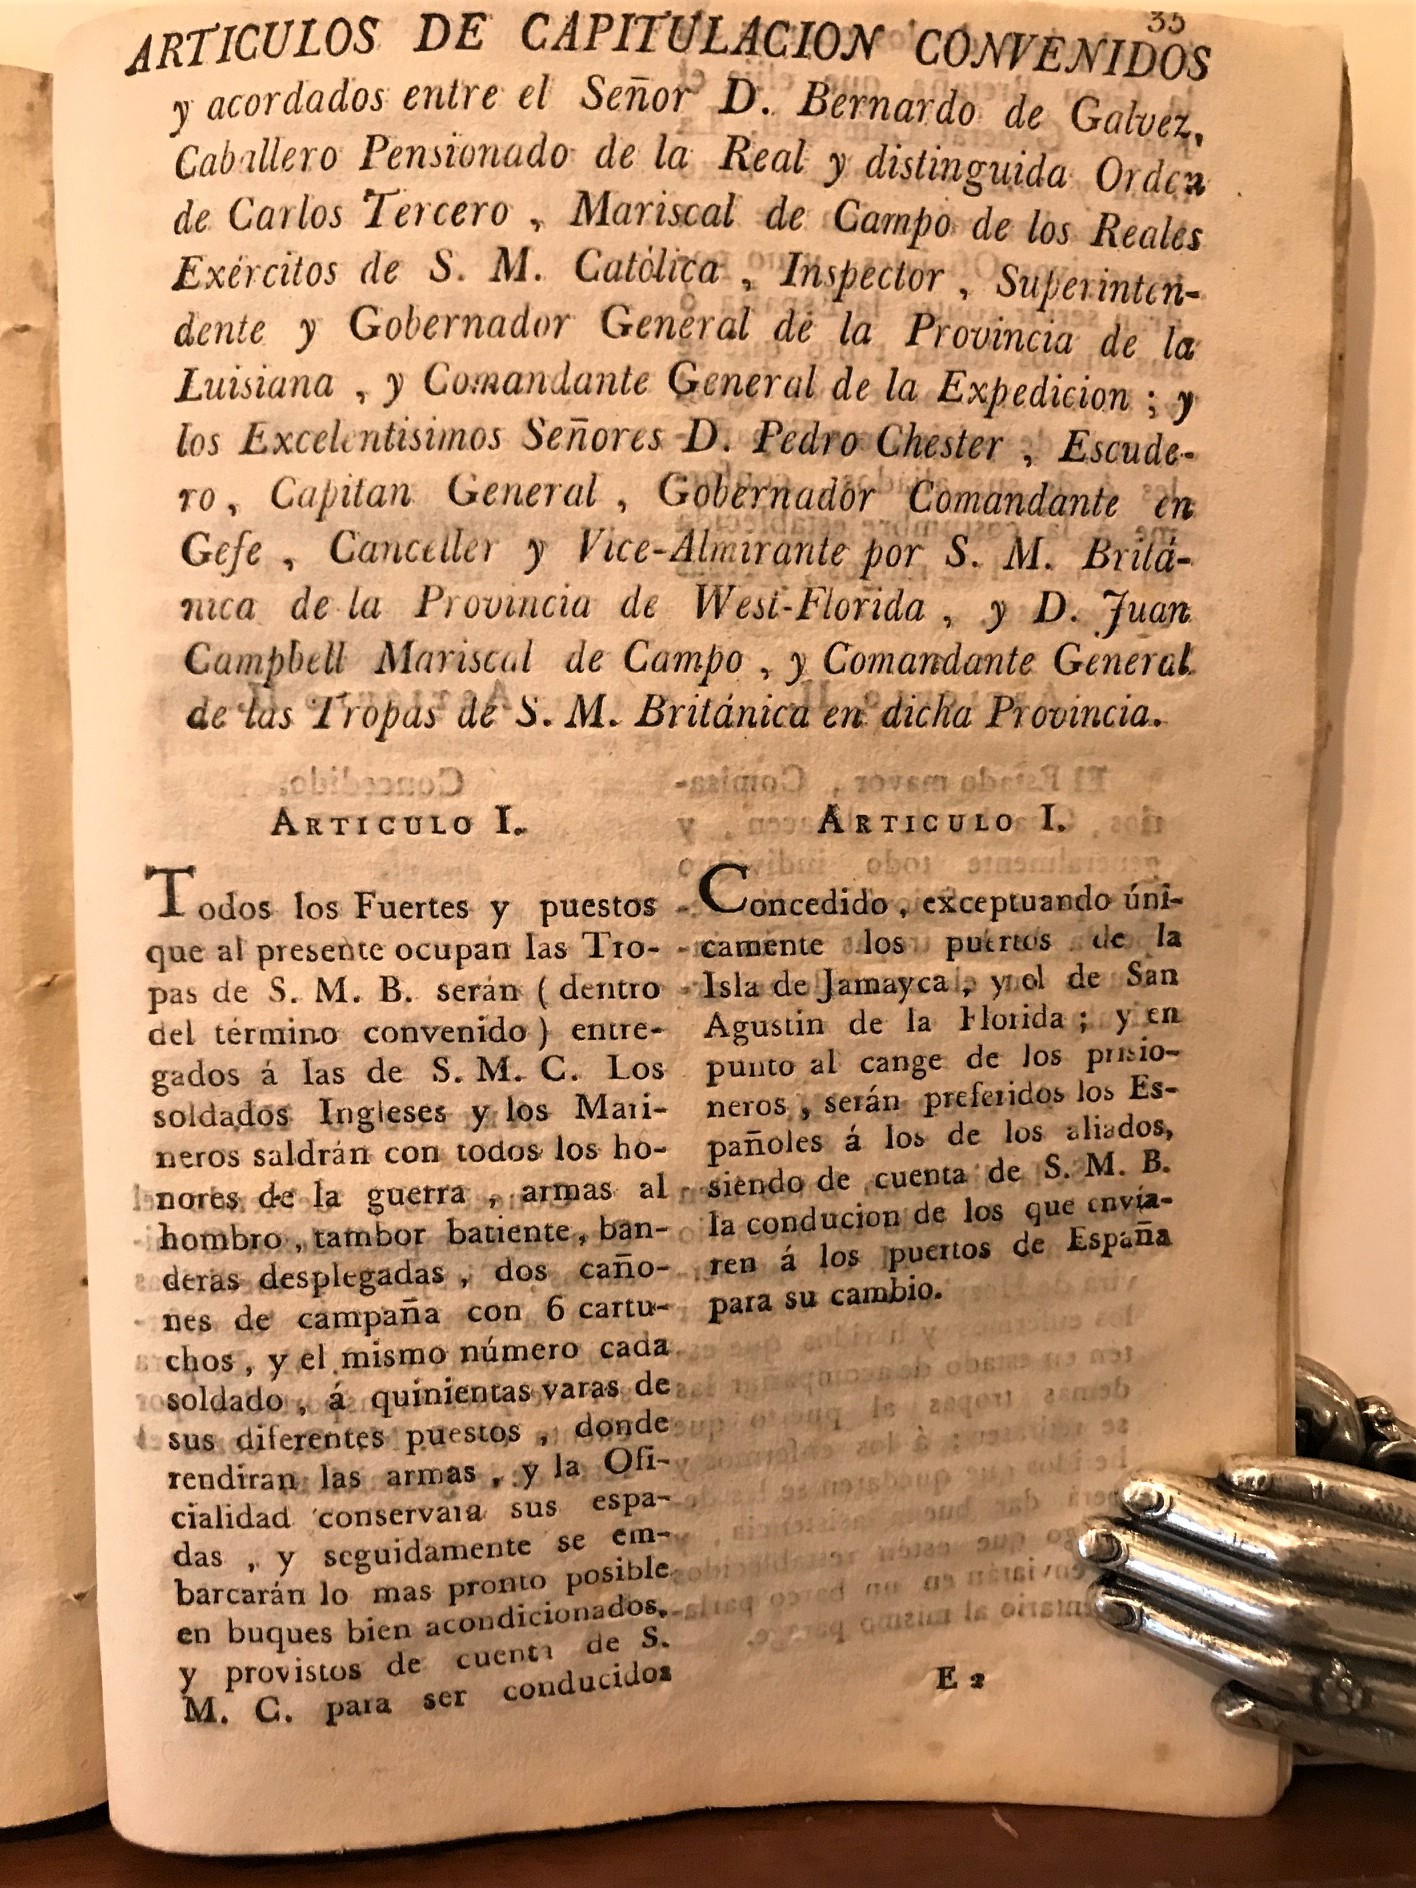 35
ARTICULOS DE CAPITULACION CONVENIDOS
y acordados entre el Señor D. Bernardo de Galvez,
Caballero Pensionado de la Real y distinguida Orden
de Carlos Tercero , Mariscal de Campo de los Reales
Exércitos de S. M. Católica , Inspector , Superinten-
dente y Gobernador General de la Provincia de la
Luisiana , y Comandante General de la Expedicion ; y
los Excelentisimos Señores D. Pedro Chester , Escude-
ro , Capitan General , Gobernador Comandante en
Gefe , Canceller y Vice-Almirante por S. M. Britá-
nica de la Provincia de West-Florida , y D. Juan
Campbell Mariscal de Campo , y Comandante General
de las Tropas de S. M. Británica en dicha Provincia.
ARTICULO I.
Todos los Fuertes y puestos
que al presente ocupan las Tro-
pas de S. M. B. serán ( dentro
del término convenido ) entre-
gados á las de S. M. C. Los
soldados Ingleses y los Mari-
neros saldrán con todos los ho-
nores de la guerra , armas al
hombro , tambor batiente , ban-
deras desplegadas , dos caño-
nes de campaña con 6 cartu-
chos , y el mismo número cada
soldado , á quinientas varas de
sus diferentes puestos , donde
rendiran las armas , y la Ofi-
cialidad conservara sus espa-
das , y seguidamente se em-
barcarán lo mas pronto posible
en buques bien acondicionados,
y provistos de cuenta de S.
M. C. para ser conducidos
ARTICULO I.
Concedido , exceptuando úni-
camente los puertos de la
Isla de Jamayca , y el de San
Agustin de la Florida ; y en
punto al cange de los prisio-
neros , serán preferidos los Es-
pañoles á los de los aliados,
siendo de cuenta de S. M. B.
la conducion de los que envia-
ren á los puertos de España
para su cambio.
E 2